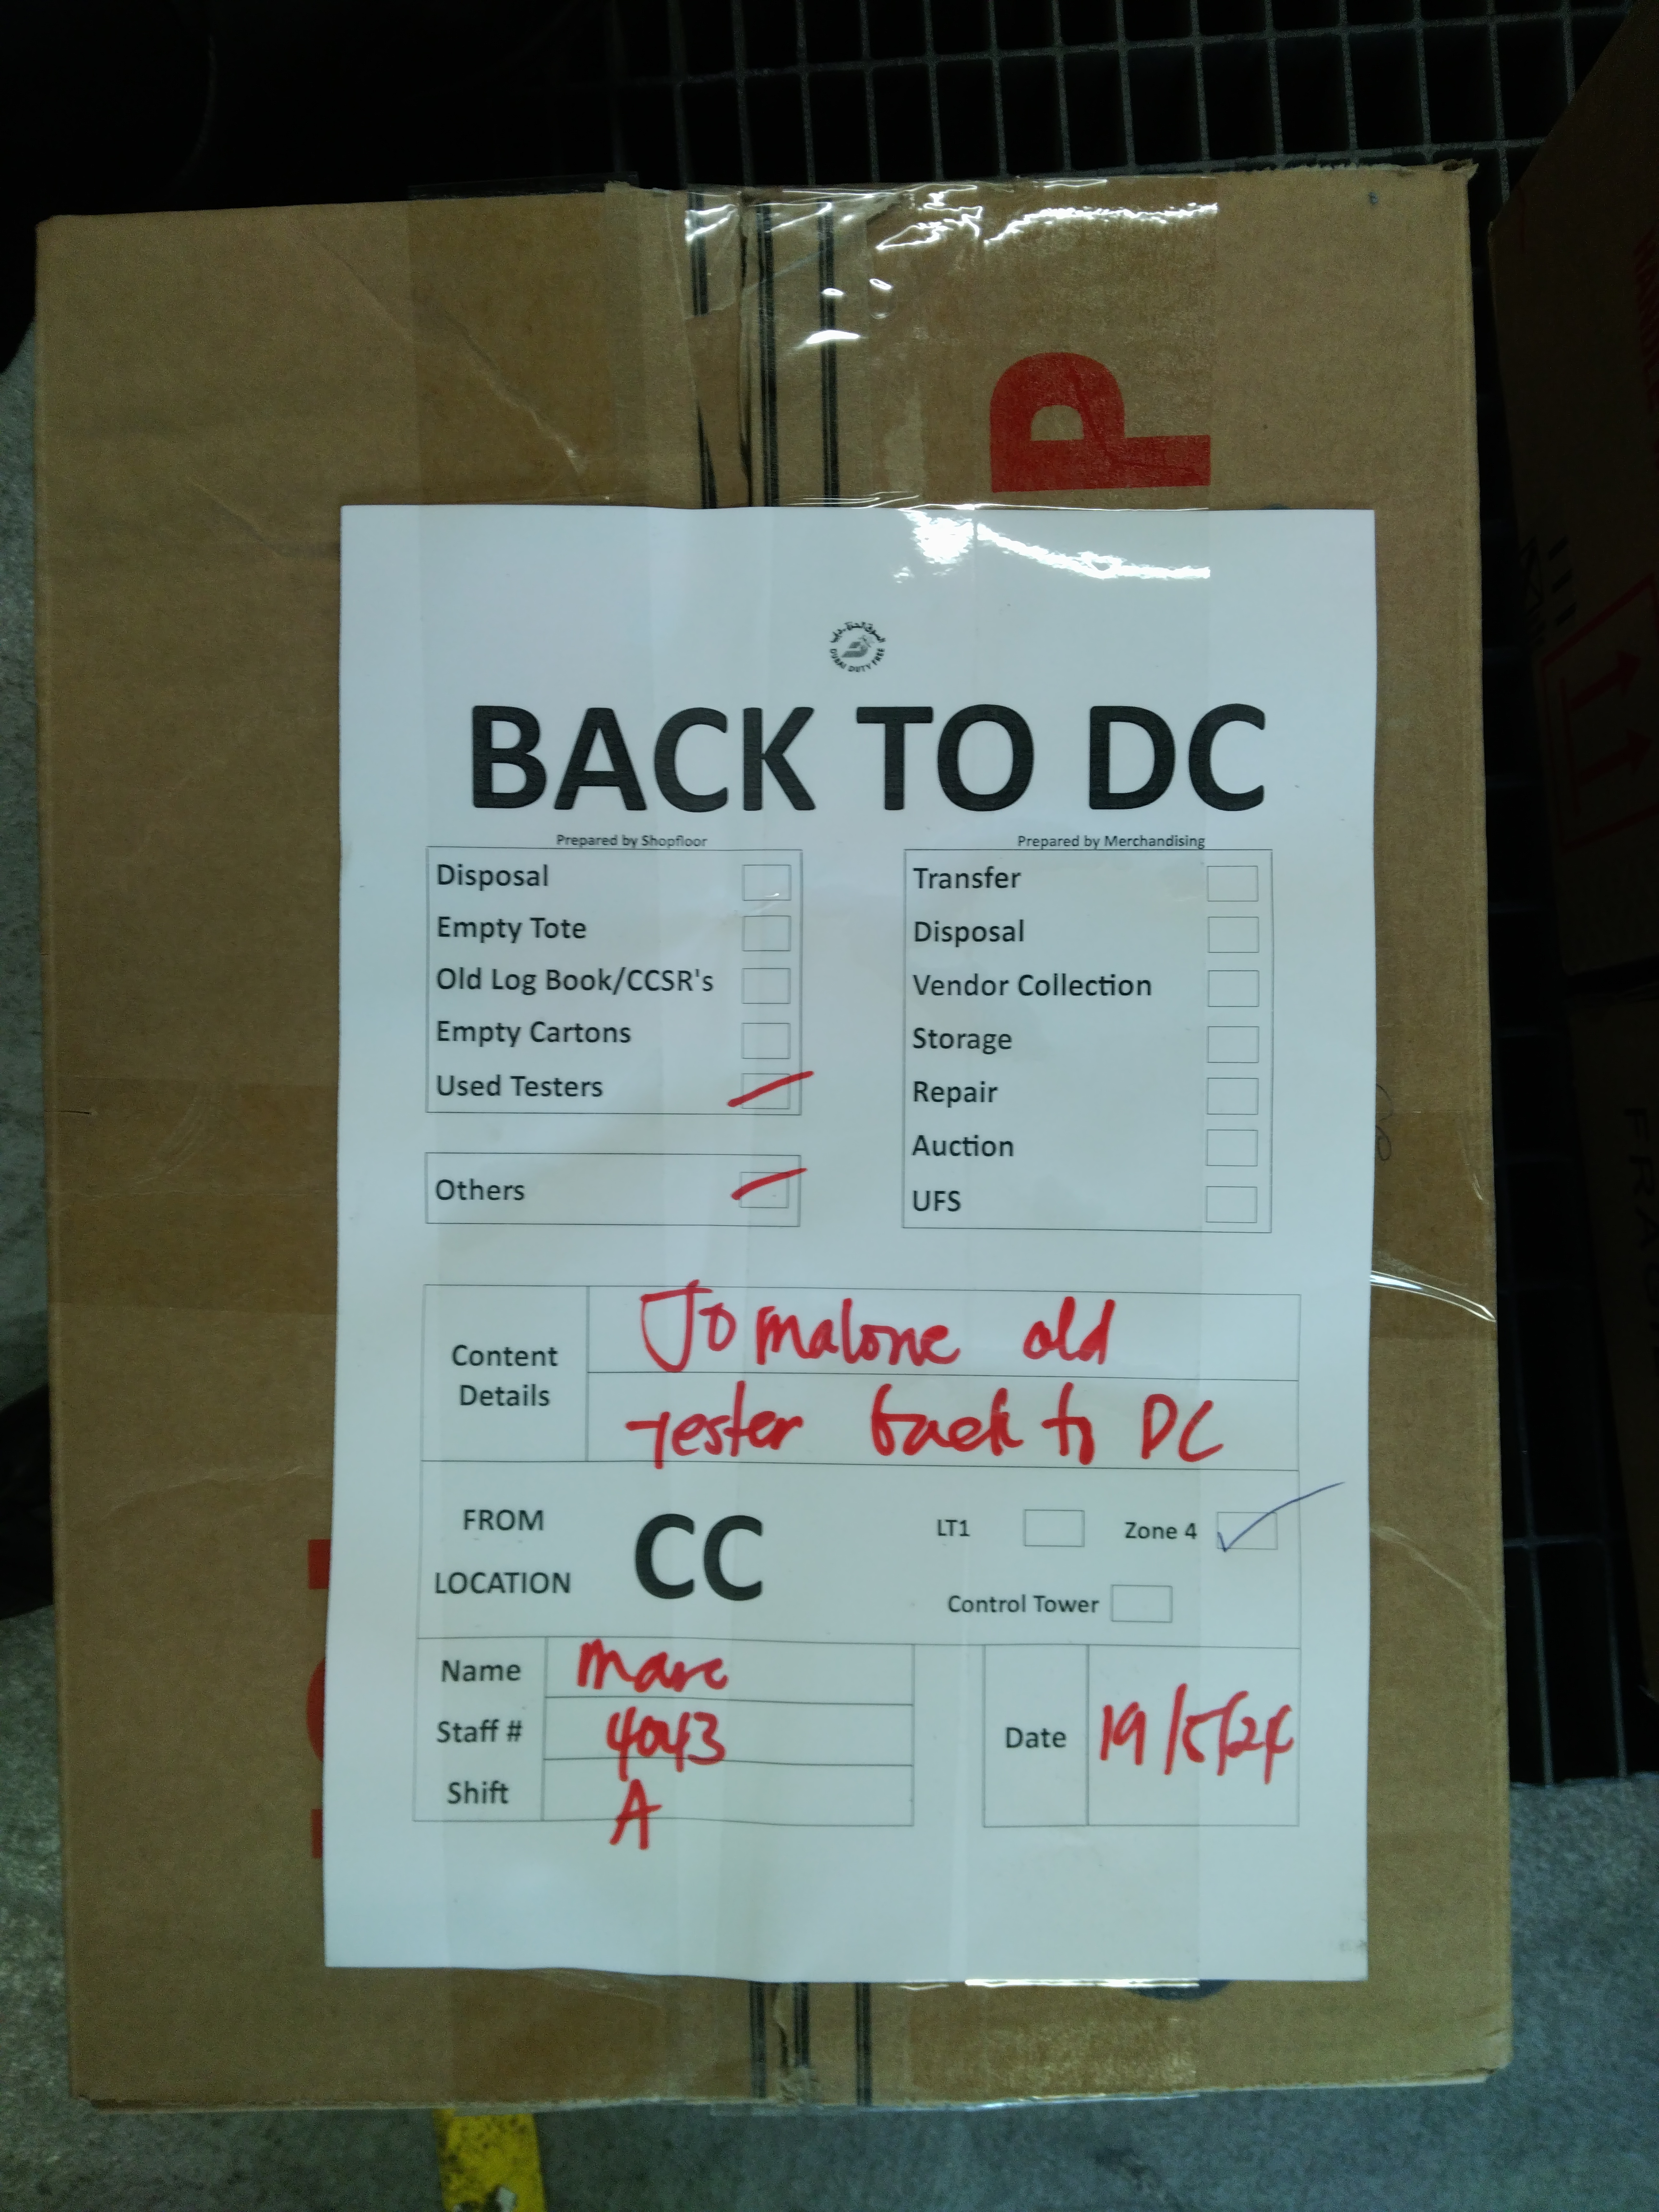 P
السوق الحرة دبي
DUBAI DUTY FREE
BACK TO DC
Prepared by Shopfloor
Disposal
Empty Tote
Old Log Book/CCSR's
Empty Cartons
Used Testers
Others
Prepared by Merchandising
Transfer
Disposal
Vendor Collection
Storage
Repair
Auction
UFS
Content Details
Jo malone old
Tester back to DC
FROM LOCATION
CC
LT1
Zone 4
Control Tower
Name
Marc
Staff #
4043
Shift
A
Date
19/5/24